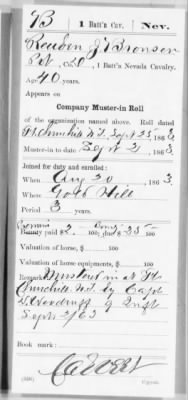 B 1 Batt'n Cav. Nev.
Reuben J Bronson
Pvt, Co. D, 1 Batt'n Nevada Cavalry.
Age 40 years.
Appears on
Company Muster-in Roll
of the organization named above. Roll dated
Ft. Churchill N.T. Sept 25, 1863
Muster-in to date Sept 2, 1863
Joined for duty and enrolled:
When Aug 20, 1863
Where Gold Hill
Period 3 years.
Bounty paid $ 100; due $ 25 100
Valuation of horse, $ 100
Valuation of horse equipments, $ 100
Remarks: Mustered in at Ft
Churchill N.T. by Capt
Sept 2/63
Book mark:
Copyist.